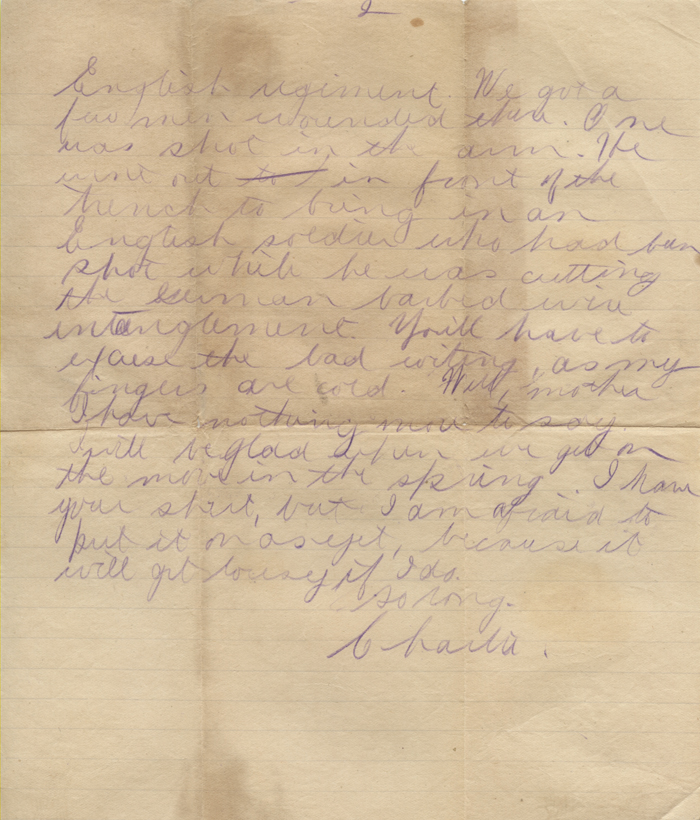 2
English regiment. We got a
few men wounded there. One
was shot in the arm. He
went out to in front of the
trench to bring in an
English soldier who had been
shot while he was cutting
the German barbed wire
entanglement. You'll have to
excuse the bad writing, as my
fingers are cold. Well, mother
I have nothing more to say.
will be glad when we get on
the move in the spring. I have
your shirt, but I am afraid to
put it on as yet, because it
will get lousy if I do.
So long.
Charlie.